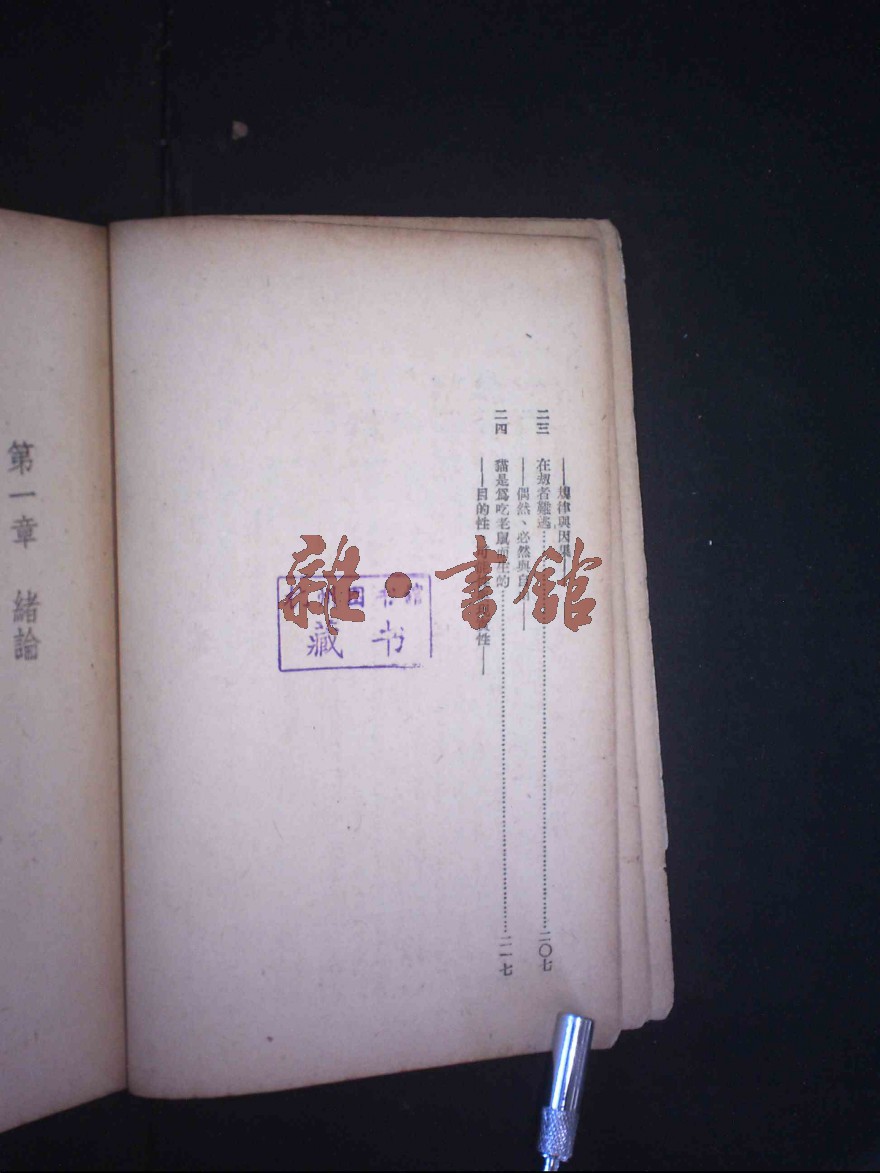 ——規律與因果——
二三 在刼者難逃……二〇七
——偶然、必然與自
二四 貓是爲吃老鼠而生的……二一七
——目的性、可能性、現實性——
图书馆
藏书
雜·書館
第一章 緒論